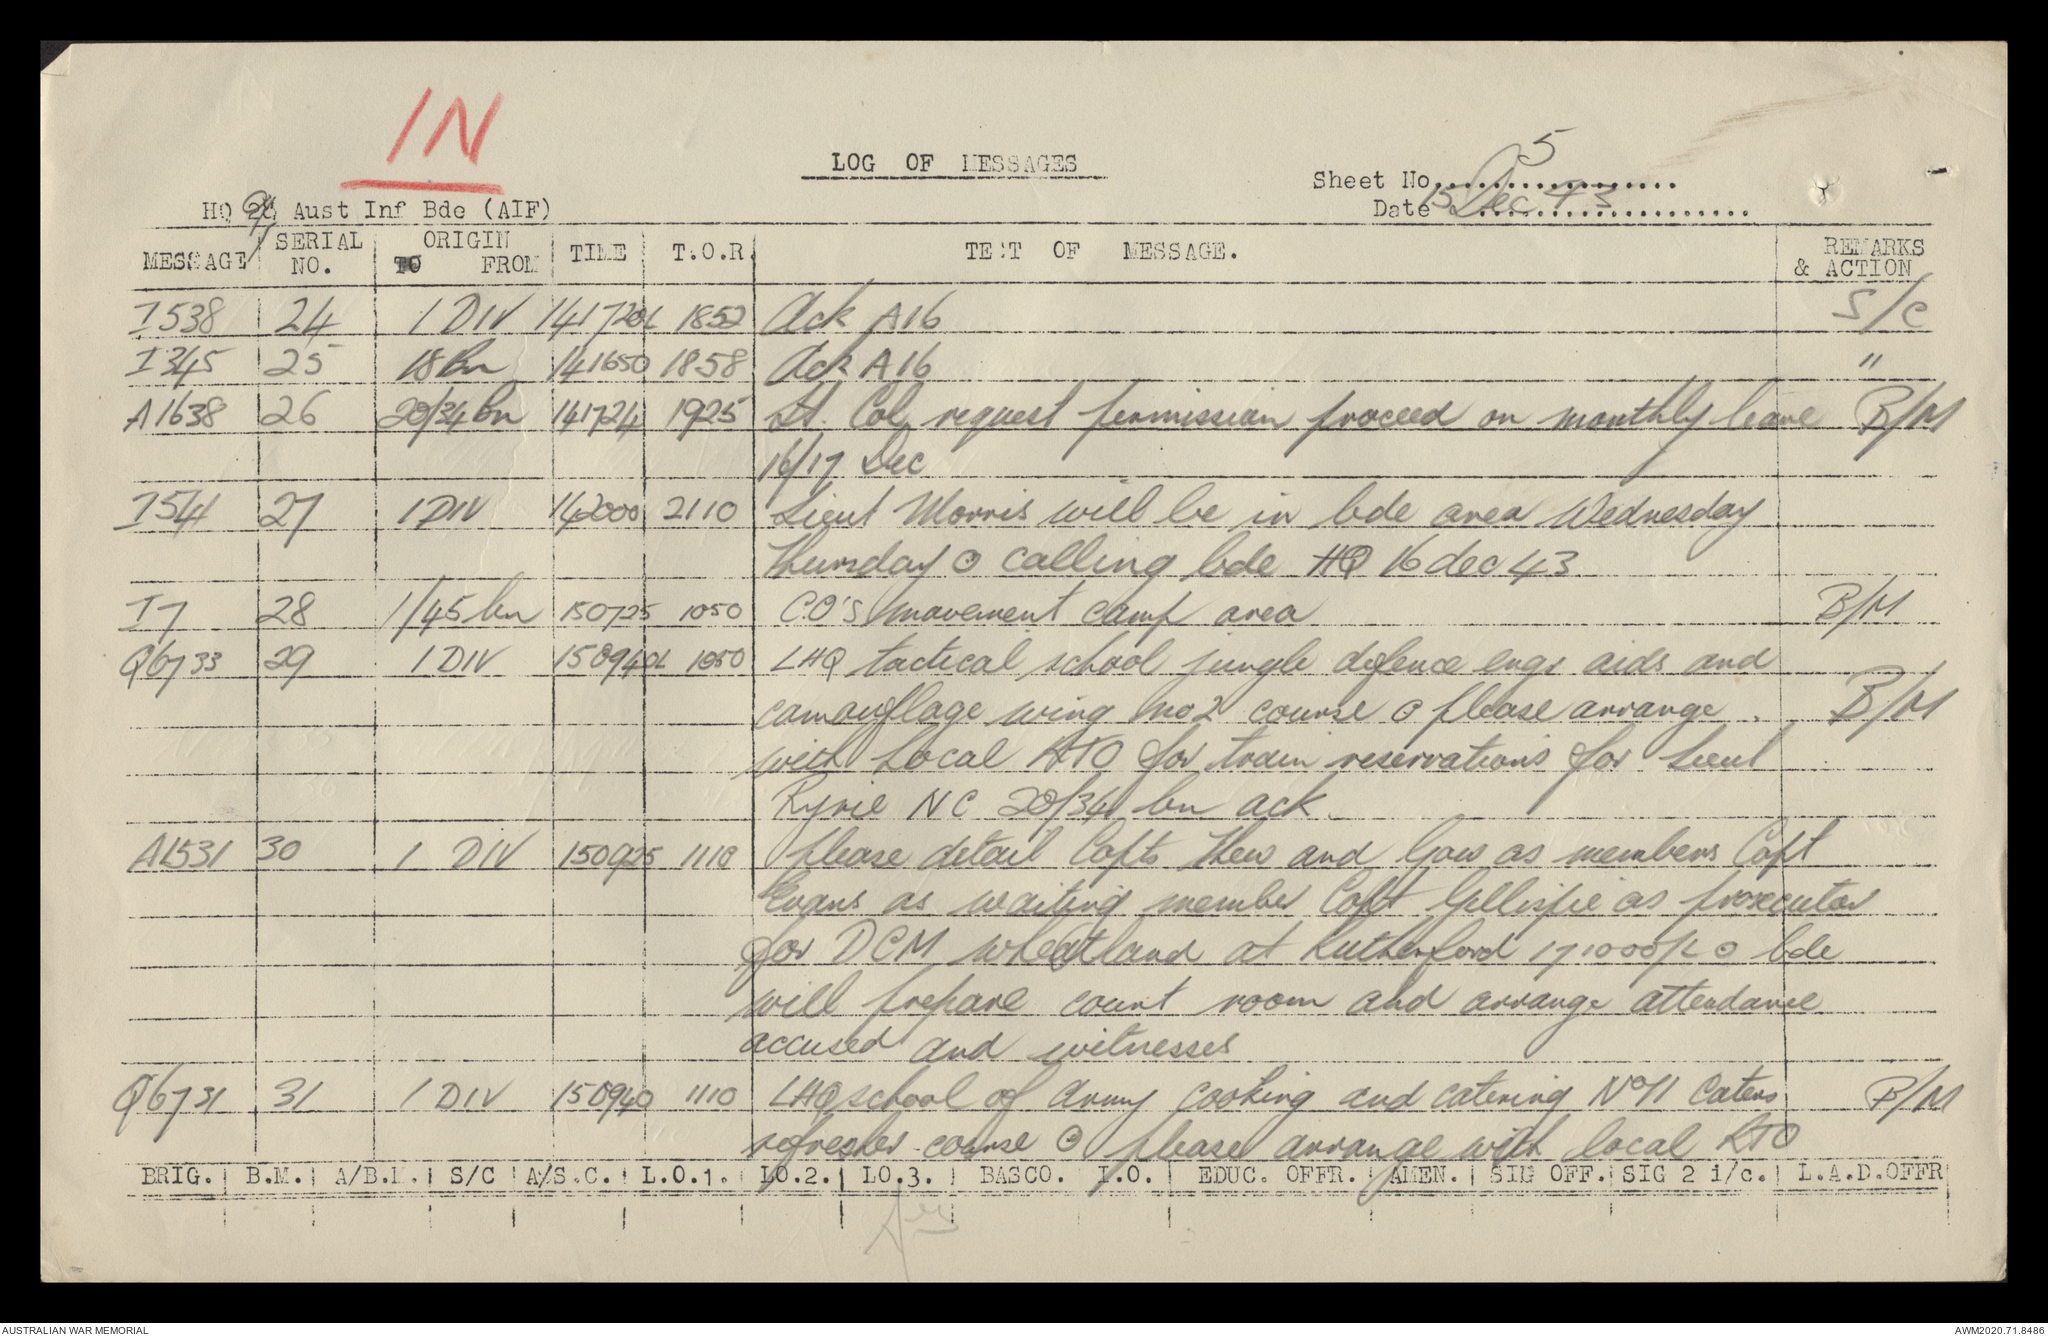 IN
LOG OF MESSAGES
Sheet No. 5
HQ 9 Aust Inf Bde (AIF)
Date 15 Dec 43
MESSAGE SERIAL NO. ORIGIN TO FROM TIME T.O.R. TEXT OF MESSAGE. REMARKS & ACTION
I538 24 1 DIV 141720L 1852 Ack A16 S/C
I345 25 18 Bn 141650 1858 Ack A16 "
A1638 26 20/34 bn 141724 1925 Lt. Col request permission proceed on monthly leave B/M
16/17 Dec
I541 27 1 DIV 142000 2110 Lieut Morris will be in bde area Wednesday
Thursday ⊙ calling bde HQ 16 dec 43
I7 28 1/45 bn 150725 1050 CO'S movement camp area B/M
Q6733 29 1 DIV 150940L 1050 LHQ tactical school jungle defence engr aids and
camouflage wing no 2 course ⊙ please arrange B/M
with local RTO for train reservations for Lieut
Ryrie NC 20/34 bn ack.
A1531 30 1 DIV 150925 1110 please detail Capts Thew and Gow as members Capt
Evans as waiting member Capt Gillispie as prosecutor
for DCM wheatland at Rutherford 171000K ⊙ bde
will prepare court room and arrange attendance
accused and witnesses
Q6731 31 1 DIV 150940 1110 LHQ school of army cooking and catering No 11 caters B/M
refresher course ⊙ please arrange with local RTO
BRIG. B.M. A/B.M. S/C A/S.C. L.O.1. LO.2. LO.3. BASCO. I.O. EDUC. OFFR. AMEN. SIG OFF. SIG 2 i/c. L.A.D.OFFR
AUSTRALIAN WAR MEMORIAL
AWM2020.71.8486